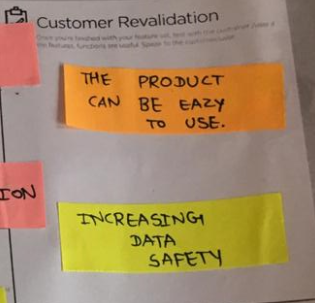 Customer Revalidation
Once you're finished with your feature list, test with the customer
THE PRODUCT
CAN BE EAZY
TO USE.
ION
INCREASING
DATA
SAFETY